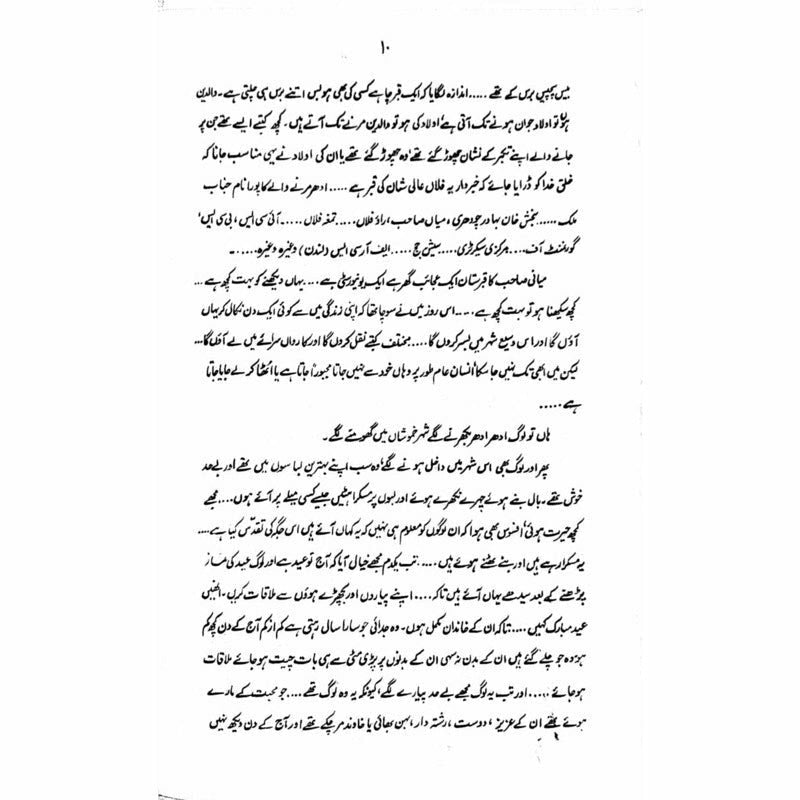 ۱۰
بیس پچیس برس کے تھے ..... اندازہ لگایا کہ ایک قبر چاہے کسی کی بھی ہو بس اتنے برس ہی چلتی ہے۔ والدین
ہوں تو اولاد جوان ہونے تک آتی ہے اولاد کی ہو تو والدین مرنے تک آتے ہیں۔ کچھ کتبے ایسے تھے جن پر
جانے والے اپنے تکبر کے نشان چھوڑ گئے تھے وہ چھوڑ گئے تھے یا ان کی اولاد نے یہی مناسب جانا کہ
خلق خدا کو ڈرایا جائے کہ خبردار یہ فلاں عالی شان کی قبر ہے ..... ادھر مرنے والے کا پورا نام جناب
ملک ...... بخش خان بہادر چودھری، میاں صاحب، راؤ فلاں..... تمغہ فلاں ..... آئی سی ایس، بی سی ایس'
گورنمنٹ آف.... مرکزی سیکرٹری..... سیشن جج ..... ایف آر سی ایس (لندن) وغیرہ وغیرہ.....۔
میانی صاحب کا قبرستان ایک عجائب گھر ہے ایک یونیورسٹی ہے .... یہاں دیکھنے کو بہت کچھ ہے ...
کچھ سیکھنا ہو تو بہت کچھ ہے ..... اس روز میں نے سوچا تھا کہ اپنی زندگی میں سے کوئی ایک دن نکال کر یہاں
آؤں گا اور اس وسیع شہر میں بسر کروں گا .... مختلف کتبے نقل کروں گا اور کارواں سرائے میں لے آؤں گا...
لیکن میں ابھی تک نہیں جا سکا انسان عام طور پر وہاں خود سے نہیں جاتا مجبوراً جاتا ہے یا اٹھا کر لے جایا جاتا
ہے .....
ہاں تو لوگ ادھر ادھر بکھرنے لگے شہر خموشاں میں گھومنے لگے۔
پھر اور لوگ بھی اس شہر میں داخل ہونے لگے وہ سب اپنے بہترین لباسوں میں تھے اور بے حد
خوش تھے۔ بال بنے ہوئے چہرے نکھرے ہوئے اور لبوں پر مسکراہٹیں جیسے کسی میلے پر آئے ہوں.... مجھے
کچھ حیرت ہوئی' افسوس بھی ہوا کہ ان لوگوں کو معلوم ہی نہیں کہ یہ کہاں آئے ہیں اس جگہ کی تقدس کیا ہے....
یہ مسکرا رہے ہیں اور بنے ٹھنے ہوئے ہیں ..... تب یکدم مجھے خیال آیا کہ آج تو عید ہے اور لوگ عید کی نماز
پڑھنے کے بعد سیدھے یہاں آئے ہیں تاکہ.... اپنے پیاروں اور بچھڑے ہوؤں سے ملاقات کریں۔ انہیں
عید مبارک کہیں ..... تاکہ ان کے خاندان مکمل ہوں۔ وہ جدائی جو سارا سال رہتی ہے کم از کم آج کے دن کچھ کم
ہو وہ جو چلے گئے ہیں ان کے بدن نہ سہی ان کے بدنوں پر پڑی مٹی سے ہی بات چیت ہو جائے ملاقات
ہو جائے ..... اور تب یہ لوگ مجھے بے حد پیارے لگے، کیونکہ یہ وہ لوگ تھے .... جو محبت کے مارے
ہوئے تھے ان کے عزیز، دوست، رشتہ دار، بہن بھائی یا خاوند مر چکے تھے اور آج کے دن دیکھ نہیں